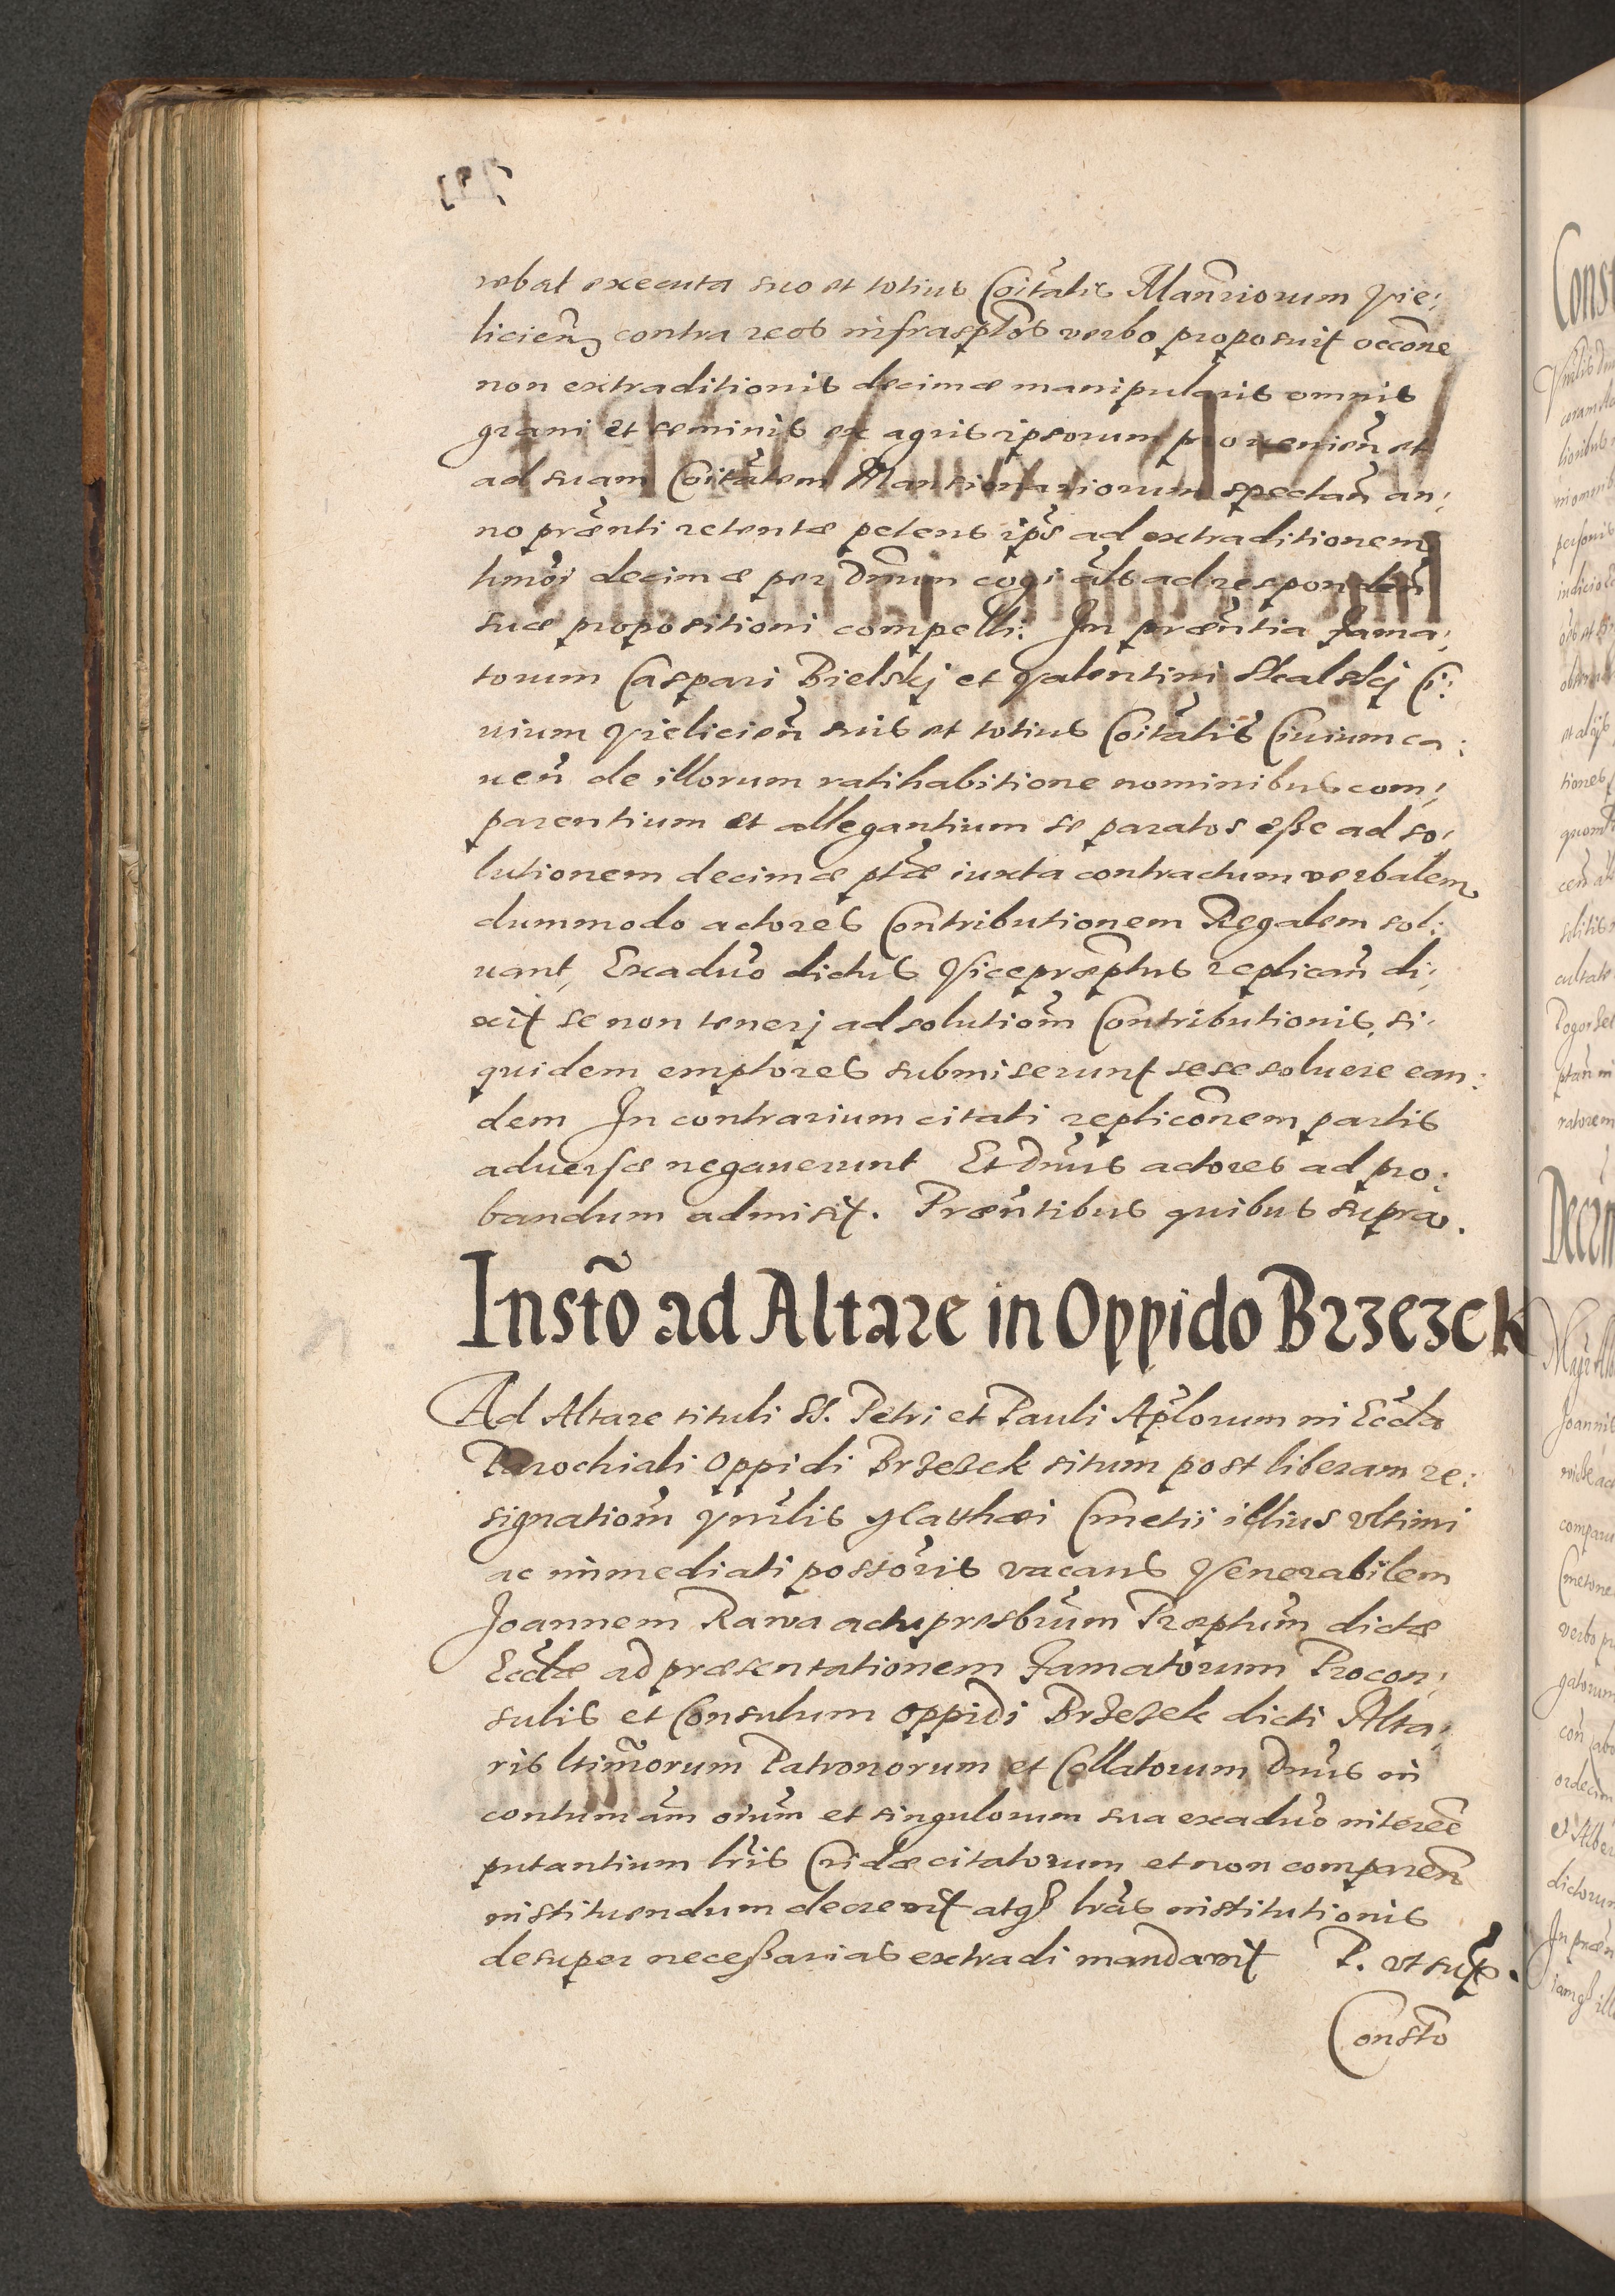 rebat executa suo et totius Coitatis Manriorum Vie:
licien contra reos infrasptos verbo proposuit occone
non extraditionis decimæ manipularis omnis
grani et seminis ex agris ipsorum provenien et
ad suam Coitatem Mansionariorum spectan an:
no prænti retentæ petens ips ad extraditionem
hmoi decimæ per Dnum cogi als ad responden
suæ propositioni compelli: In præntia fama:
torum Caspari Bielskj et Valentini Skalskj Ci:
uium Vielicien suis et totius Coitatis Ciuium ca:
uen de illorum ratihabitione nominibus com:
parentium et allegantium se paratos eße ad so:
lutionem decimæ ptæ iuxta contractum verbalem
dummodo actores Contributionem Regalem sol:
uant, Exaduo dictus Vicepræptus replican di:
xit se non tenerj ad solutiom Contributionis, si:
quidem emptores submiserunt sese soluere ean:
dem In contrarium citati repliconem partis
aduersæ negauerunt Et Dnus actores ad pro:
bandum admisit. Præntibus quibus supra.
Insto ad Altare in Oppido Brzezek
Ad Altare tituli SS. Petri et Pauli Aplorum in Eccla
Parochiali Oppidi Brzezek situm post liberam re:
signatiom Vnrlis Matthæi Cmetii illius vltimi
ac immediati possoris vacans Venerabilem
Joannem Rawa actu presbrum Præptum dictæ
Ecclæ ad præsentationem famatorum Procon:
sulis et Consulum Oppidi Brzezek dicti Alta:
ris ltimorum Patronorum et Collatorum Dnus in
contumam oium et singulorum sua exaduo interee
putantium lris Cridæ citatorum et non comparen
instituendum decreuit atq lras institutionis
desuper neceßarias extradi mandauit P. vt supra.
Consto